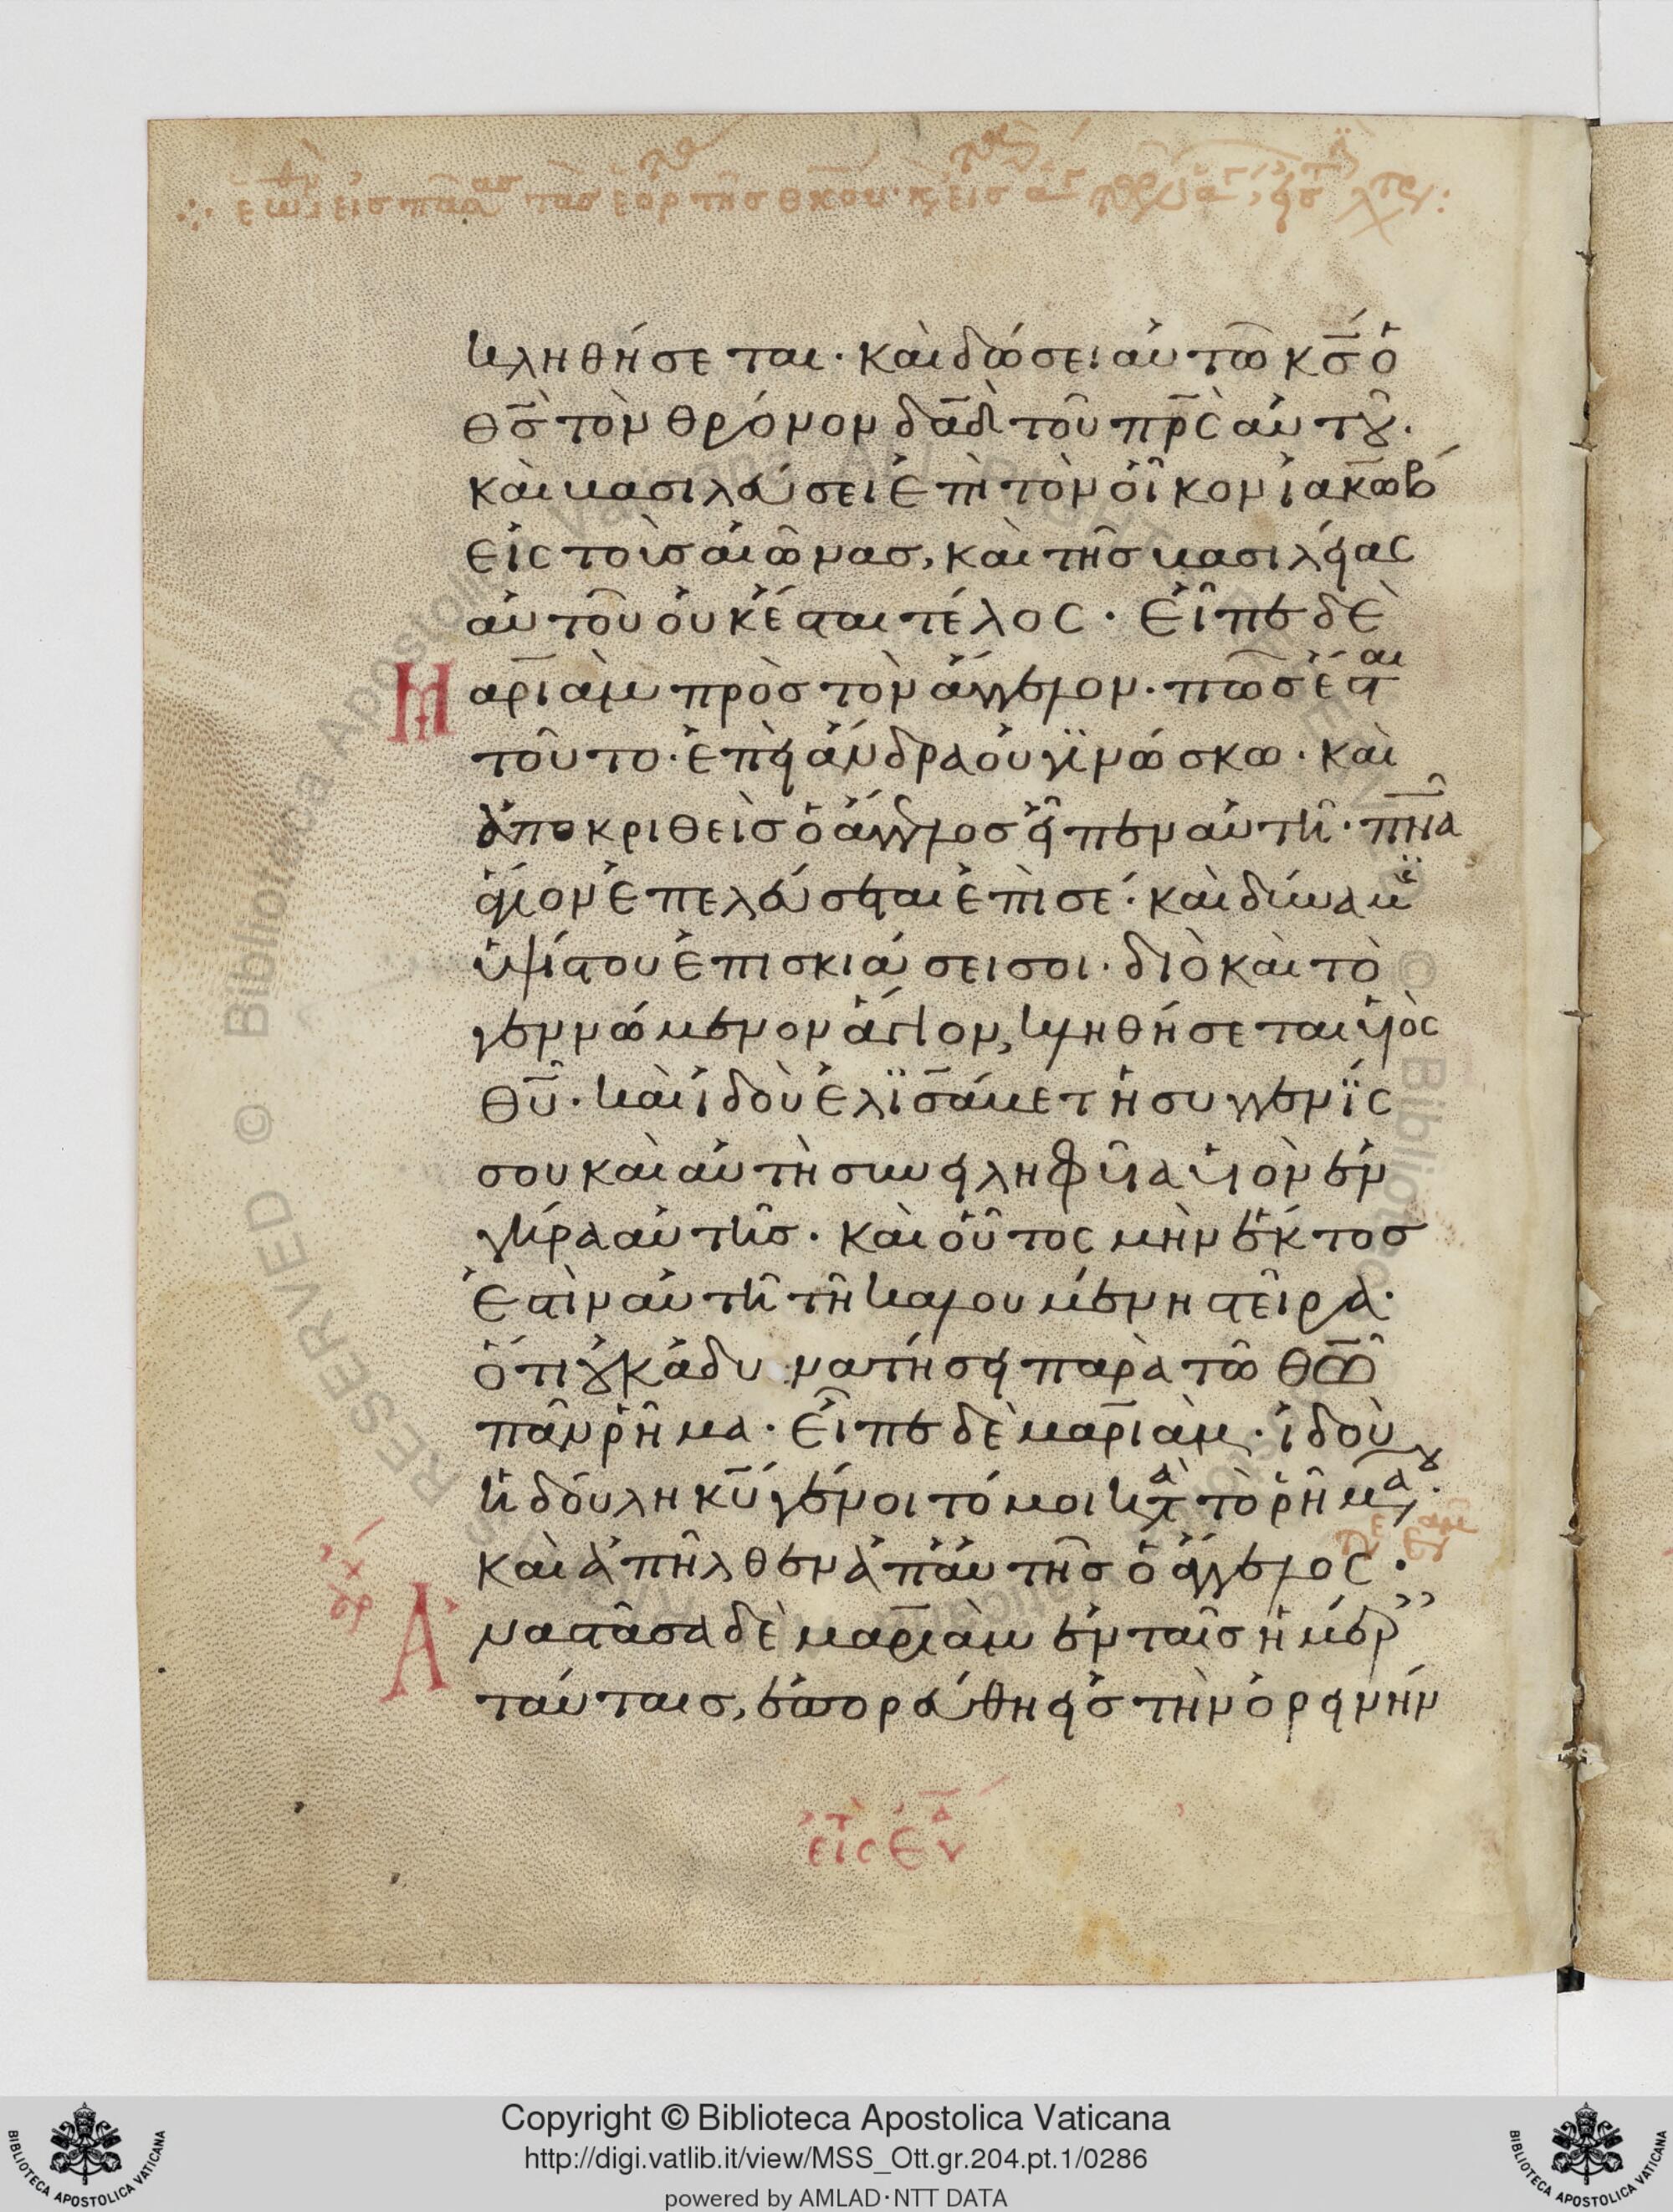 κληθήσεται· καὶ δώσει αὐτῶ κ̅σ̅ ὁ
θ̅σ̅ τὸν θρόνον δα̅δ̅ τοῦ π̅ρ̅ς αὐτοῦ·
καὶ βασιλεύσει ἐπὶ τὸν οἶκον ἰακώβ
εἰς τοὺσ αἰῶνασ, καὶ τῆσ βασιλείας
αὐτοῦ οὐκ έσται τέλος· Εἶπε δὲ
Μαριὰμ πρὸσ τὸν ἄγγελον· πῶσ ἔσται
τοῦτο· ἐπεὶ ἄνδρα οὐ γϊνώσκω· καὶ
ἀποκριθεὶσ ὁ ἄγγελοσ εἶπεν αὐτῆ· π̅ν̅α
ἅγιον ἐπελεύσεται ἐπὶ σέ· καὶ δύναμϊς
ὑψίστου ἐπισκιάσει σοι· διὸ καὶ τὸ
γεννώμενον ἅγιον, κληθήσεται υἱὸς
θ̅υ̅· καὶ ἰδοὺ ἐλϊσάβετ ἡ συγγενΐς
σου καὶ αὐτὴ συνειληφυῖα υἱὸν ἐν
γήρα αὐτῆσ· καὶ οὗτος μὴν ἕκτοσ
ἐστὶν αὐτῆ τῆ καλουμένη στεῖρα·
ὅτι οὐκ ἀδυνατήσει παρὰ τῶ θ̅ω̅
πᾶν ῥῆμα· Εἶπε δὲ μαριὰμ· ἰδοὺ
ἡ δούλη κ̅υ̅ γένοιτό μοι κατὰ τὸ ῥῆμά σου·
καὶ ἀπῆλθεν ἀπ' αὐτῆσ ὁ ἄγγελος·
Ἀναστᾶσα δὲ μαριὰμ ἐν ταῖσ ἡμέρ
ταύταισ, ἐπορεύθη εἰσ τὴν ὀρεινήν